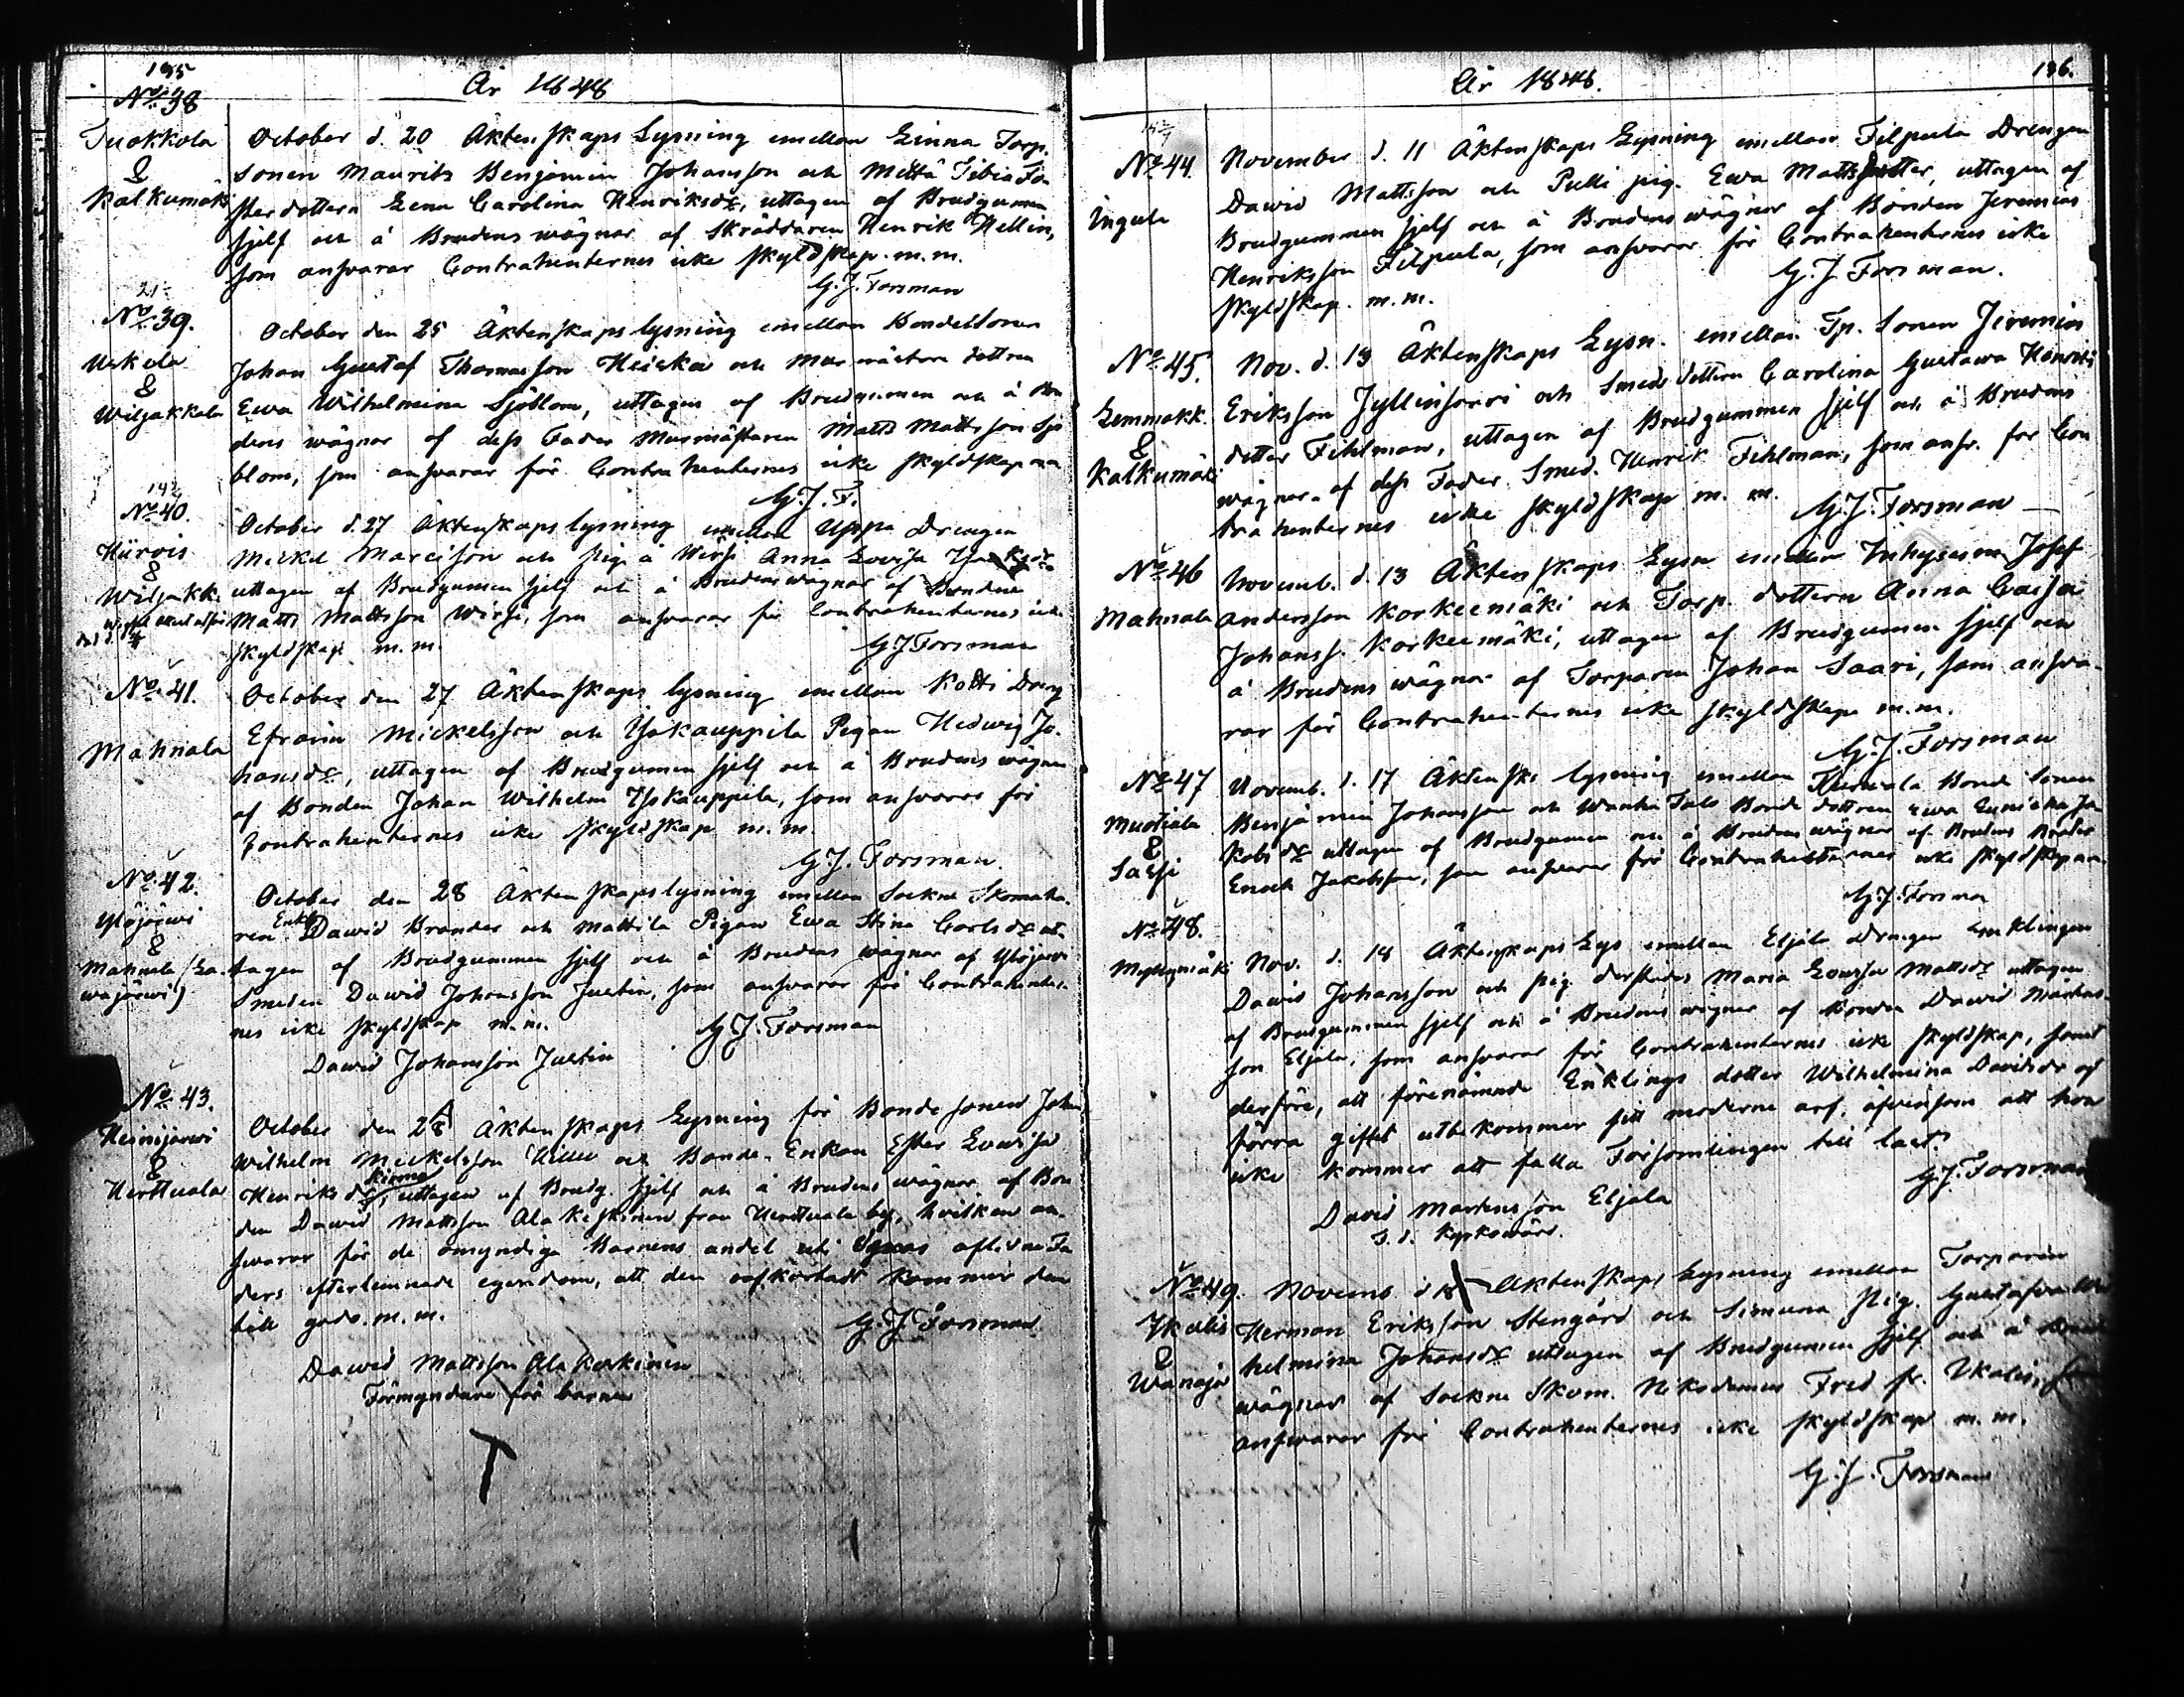 195
År 1848
No 38
Tuokkola
&
Kalkumäki
October d. 20 Äktenskaps Lysning emellan Linna Torp.
sonen Maurits Benjamin Johansson och Fo-
sterdottern Lena Carolina Henriksdr, uttagen af Brudgumen
sjelf och å Brudens wägnar af Skräddaren Henrik Hellin,
som answarar Contrahenternes icke skyldskap m.m.
G. J. Forsman
No 39.
Uskela
&
Wiljakkala
October den 25 Äktenskapslysning emellan Bondesonen
Johan Gustaf Thomasson Heiska och Murmästare dottren
Ewa Wilhelmina Sjöblom, uttagen af Brudgumen och å Bru
dens wägnar af dess Fader Murmästaren Matts Mattsson Sjö
blom, som answarar för Contrahenternes icke skyldskap m m
G. J. F.
No 40.
&
Wiljakk.
October d. 27 Äktenskapslysning emellan Uppa Drengen
Mickel Marcisson och pig. å Wirsi Anna Lovisa
uttagen af Brudgumen sjelf och å Brudens wägnar af Bonden
Matts Mattsson Wirsi, som answarar för Contrahenternes icke
skyldskap m.m.
G J Forsman
No 41.
Mahnala
October den 27 Äktenskaps lysning emellan Kotti Dreng
Efraim Mickelsson och Ysokauppila Pigan Hedwig Jo-
hansdr, uttagen af Brudgumen sjelf och å Brudens wägnar
af Bonden Johan Wilhelm Ysokauppila, som answarar för
Contrahenternes icke skyldskap m.m.
G. J. Forsman
No 42.
Ylöjärwi
&
Mahnala (La-
wajärwi)
October den 28 Äktenskapslysning emellan Sockne Skomaka-
ren Enkl. Dawid Brander och Mattila Pigan Ewa Stina Carlsdr ut-
tagen af Brudgummen sjelf och å Brudens wägnar af Ylöjärwi
Smeden Dawid Johansson Justin, som answarar för Contrahenter-
nes icke skyldskap m.m.
G J. Forsman
Dawid Johansson Justin
No 43.
Heinijärwi
&
Herttuala
October den 28 Äktenskaps Lysning för Bonde sonen Johan
Wilhelm Mickelsson och Bonde-Enkan Ester Lowisa
Henriksdr, uttagen af Brudg. sjelf och å Brudens wägnar af Bon
den Dawid Mattsson Ala Keskinen från Herttuala by, hwilken an-
swarar för de omyndiga Barnens andel uti aflidne Fa
ders efterlemnade egendom, att den oafkortadt kommer dem
till godo. m.m.
G. J Forsman
Dawid Mattsson Ala Keskinen
Förmyndare för barnen
186.
År 1848.
No 44.
Ingula
November d. 11 Äktenskaps Lysning emellan Filpula Drengen
Dawid Mattsson och Pulli pig. Ewa Mattsdotter, uttagen af
Brudgummen sjelf och å Brudens wägnar af Bonden Jeremias
Henriksson Filpula, som answarar för Contrahenternes icke
skyldskap. m.m.
G. J Forsman.
No 45.
Lemmakk.
&
Kalkumäki
Nov. d. 13 Äktenskaps Lysn. emellan Tp. Sonen Jeremias
Eriksson Jyllinsaari och Smeds dottern Carolina Gustawa Henriks
dotter Fihlman, uttagen af Brudgummen sjelf och å Brudens
wägnar af dess Fader Smed. Henrik Fihlman, som answ. för Con
trahenternes icke skyldskap m. m.
G. J. Forsman
No 46
Mahnala
Novemb. d. 13 Äktenskaps Lysn emellan Inhysesm. Josef
Andersson Korkeemäki och Torp. dottern Anna Caisa
Johanss. Korkeemäki, uttagen af Brudgumen sjelf och
å Brudens wägnar af Torparen Johan Saari, som answa-
rar för Contrahenternes icke skyldskap m.m.
G. J. Forsman
No 47
Muotiala
&
Sasi
Novemb. d. 17 Äktensk. lysning emellan Bonde sonen
Benjamin Johansson och Wanha Talo Bonde dottren Ewa Ja
kobsdr uttagen af Brudgumen och å Brudens wägnar af Brudens Broder
Enoch Jakobsson, som answarar för Contrahenternes icke skyldskap m
G. J. Forsman
No 48.
Myllymäki
Nov. d. 18 Äktenskaps Lys emellan Eljala Drengen Enklingen
Dawid Johansson och pig. derstädes Maria Lowisa Mattsdr uttagen
af Brudgummen sjelf och å Brudens wägnar af Bonden Dawid Mårtens-
son Eljala, som answarar för Contrahenternes icke skyldskap, samt
derföre, att förenämnde Enklings dotter Wilhelmina Dawidsdr af
förra giftet utbekommer sitt möderne arf, äfvensom att hon
icke kommer att falla Församlingen till last.
G. J. Forsman
David Martensson Eljala
s. d. kyrkowärd.
No 49.
Ikalis
&
Wanaja
Novemb d. 18 Äktenskaps Lysning emellan Torparen
Herman Eriksson Stengård och Simuna Pig. Gustafwa Wil
helmina Johansdr uttagen af Brudgumen sjelf och å Brudens
wägnar af Sockne Skom. Nikodemus Fred fr. Ikalis, som
answarar för Contrahenternes icke skyldskap m. m.
G. J. Forsman